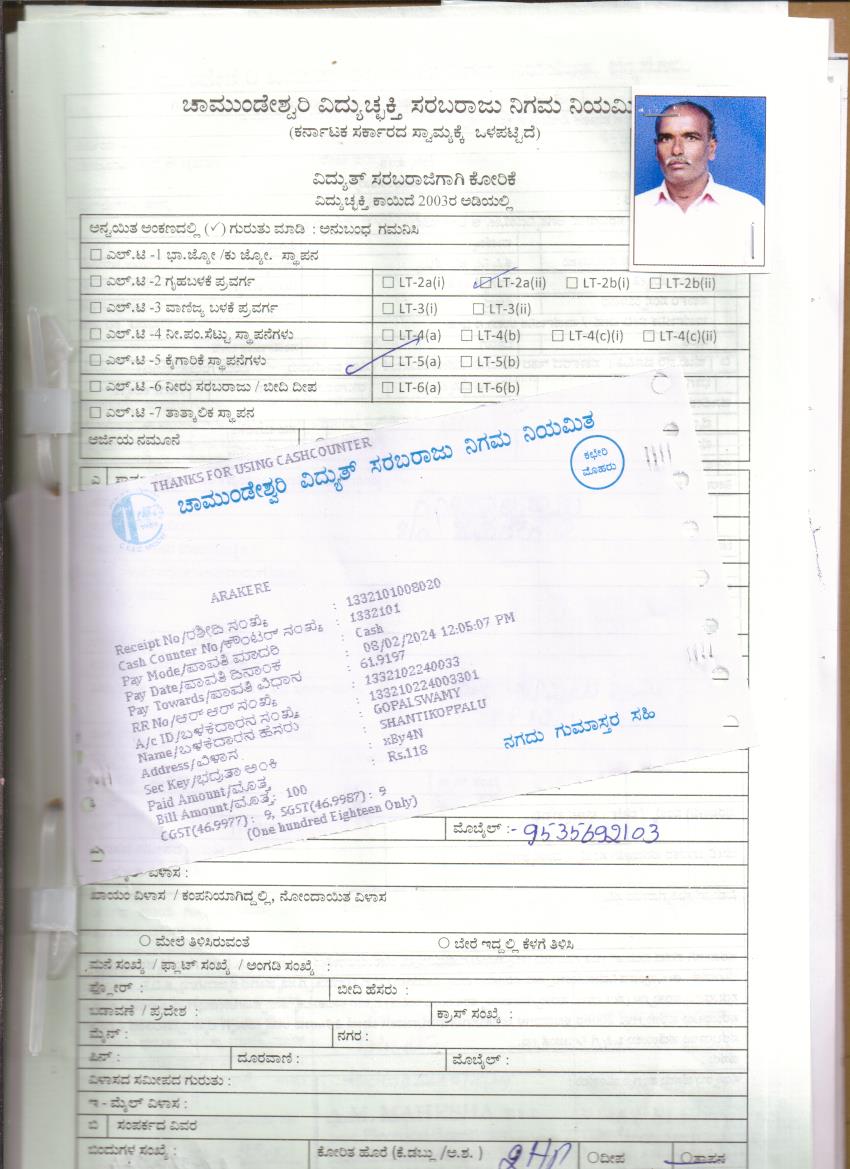 ಚಾಮುಂಡೇಶ್ವರಿ ವಿದ್ಯುಚ್ಛಕ್ತಿ ಸರಬರಾಜು ನಿಗಮ ನಿಯಮಿ
(ಕರ್ನಾಟಕ ಸರ್ಕಾರದ ಸ್ವಾಮ್ಯಕ್ಕೆ ಒಳಪಟ್ಟಿದೆ)
ವಿದ್ಯುತ್ ಸರಬರಾಜಿಗಾಗಿ ಕೋರಿಕೆ
ವಿದ್ಯುಚ್ಛಕ್ತಿ ಕಾಯಿದೆ 2003ರ ಅಡಿಯಲ್ಲಿ
ಅನ್ವಯಿತ ಅಂಕಣದಲ್ಲಿ (✓) ಗುರುತು ಮಾಡಿ : ಅನುಬಂಧ ಗಮನಿಸಿ
☐ ಎಲ್.ಟಿ -1 ಭಾ.ಜ್ಯೋ /ಕು ಜ್ಯೋ. ಸ್ಥಾಪನ
☐ ಎಲ್.ಟಿ -2 ಗೃಹಬಳಕೆ ಪ್ರವರ್ಗ ☐ LT-2a(i) ☐ LT-2a(ii) ☐ LT-2b(i) ☐ LT-2b(ii)
☐ ಎಲ್.ಟಿ -3 ವಾಣಿಜ್ಯ ಬಳಕೆ ಪ್ರವರ್ಗ ☐ LT-3(i) ☐ LT-3(ii)
☐ ಎಲ್.ಟಿ -4 ನೀ.ಪಂ.ಸೆಟ್ಟು ಸ್ಥಾಪನೆಗಳು ☐ LT-4(a) ☐ LT-4(b) ☐ LT-4(c)(i) ☐ LT-4(c)(ii)
☐ ಎಲ್.ಟಿ -5 ಕೈಗಾರಿಕೆ ಸ್ಥಾಪನೆಗಳು ☐ LT-5(a) ☐ LT-5(b)
☐ ಎಲ್.ಟಿ -6 ನೀರು ಸರಬರಾಜು / ಬೀದಿ ದೀಪ ☐ LT-6(a) ☐ LT-6(b)
☐ ಎಲ್.ಟಿ -7 ತಾತ್ಕಾಲಿಕ ಸ್ಥಾಪನ
ಅರ್ಜಿಯ ನಮೂನೆ
THANKS FOR USING CASHCOUNTER
ಚಾಮುಂಡೇಶ್ವರಿ ವಿದ್ಯುತ್ ಸರಬರಾಜು ನಿಗಮ ನಿಯಮಿತ
ಕಛೇರಿ
ಮೊಹರು
ARAKERE
Receipt No/ರಶೀದಿ ಸಂಖ್ಯೆ : 1332101008020
Cash Counter No/ಕೌಂಟರ್ ಸಂಖ್ಯೆ : 1332101
Pay Mode/ಪಾವತಿ ಮಾದರಿ : Cash
Pay Date/ಪಾವತಿ ದಿನಾಂಕ : 08/02/2024 12:05:07 PM
Pay Towards/ಪಾವತಿ ವಿಧಾನ : 61.9197
RR No/ಆರ್ ಆರ್ ಸಂಖ್ಯೆ : 1332102240033
A/c ID/ಬಳಕೆದಾರನ ಸಂಖ್ಯೆ : 133210224003301
Name/ಬಳಕೆದಾರನ ಹೆಸರು : GOPALSWAMY
Address/ವಿಳಾಸ : SHANTIKOPPALU
Sec Key/ಭದ್ರತಾ ಅಂಕಿ : xBy4N
Paid Amount/ಮೊತ್ತ : Rs.118
Bill Amount/ಮೊತ್ತ: 100
CGST(46.9977) : 9, SGST(46.9987) : 9
(One hundred Eighteen Only)
ನಗದು ಗುಮಾಸ್ತರ ಸಹಿ
ಮೊಬೈಲ್ :- 9535692103
ವಿಳಾಸ :
ಖಾಯಂ ವಿಳಾಸ / ಕಂಪನಿಯಾಗಿದ್ದಲ್ಲಿ, ನೋಂದಾಯಿತ ವಿಳಾಸ
○ ಮೇಲೆ ತಿಳಿಸಿರುವಂತೆ ○ ಬೇರೆ ಇದ್ದಲ್ಲಿ ಕೆಳಗೆ ತಿಳಿಸಿ
ಮನೆ ಸಂಖ್ಯೆ / ಫ್ಲಾಟ್ ಸಂಖ್ಯೆ / ಅಂಗಡಿ ಸಂಖ್ಯೆ :
ಫ್ಲೋರ್ : ಬೀದಿ ಹೆಸರು :
ಬಡಾವಣೆ / ಪ್ರದೇಶ : ಕ್ರಾಸ್ ಸಂಖ್ಯೆ :
ಮೈನ್ : ನಗರ :
ಪಿನ್ : ದೂರವಾಣಿ : ಮೊಬೈಲ್ :
ವಿಳಾಸದ ಸಮೀಪದ ಗುರುತು :
ಇ - ಮೈಲ್ ವಿಳಾಸ :
ಬಿ ಸಂಪರ್ಕದ ವಿವರ
ಬಿಂದುಗಳ ಸಂಖ್ಯೆ : ಕೋರಿತ ಹೊರೆ (ಕೆ.ಡಬ್ಲು /ಅ.ಶ. ) 2HP ○ದೀಪ ○ತಾಪನ